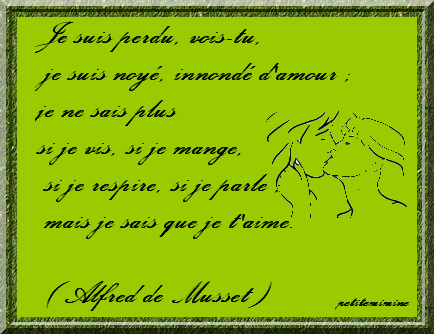 Je suis perdu, vois-tu,
je suis noyé, innondé d'amour ;
je ne sais plus
si je vis, si je mange,
si je respire, si je parle ,
mais je sais que je t'aime.
( Alfred de Musset )
petitemimine